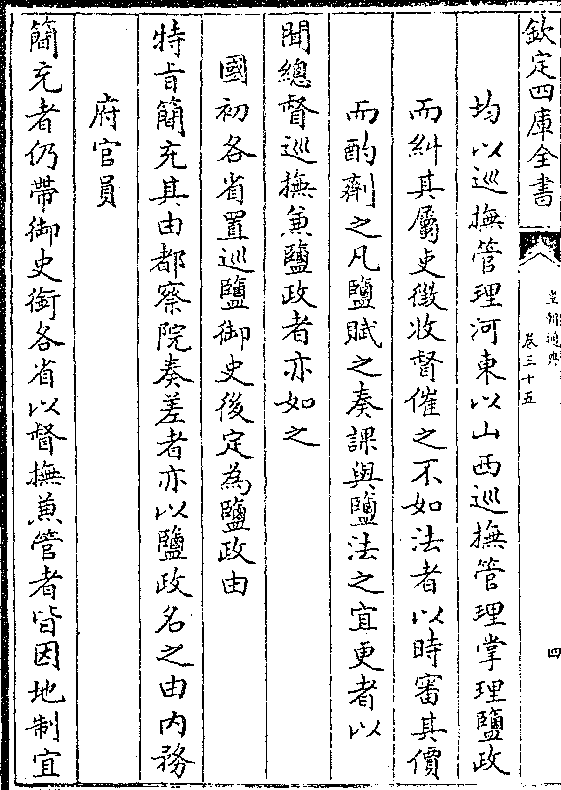 欽定四庫全書
皇朝通典
卷三十五
四
均以巡撫管理河東以山西巡撫管理掌理鹽政
而糾其屬吏徵收督催之不如法者以時審其價
而酌劑之凡鹽賦之奏課與鹽法之宜更者以
聞總督巡撫兼鹽政者亦如之
國初各省置巡鹽御史後定為鹽政由
特旨簡充其由都察院奏差者亦以鹽政名之由内務
府官員
簡充者仍帶御史銜各省以督撫兼管者皆因地制宜